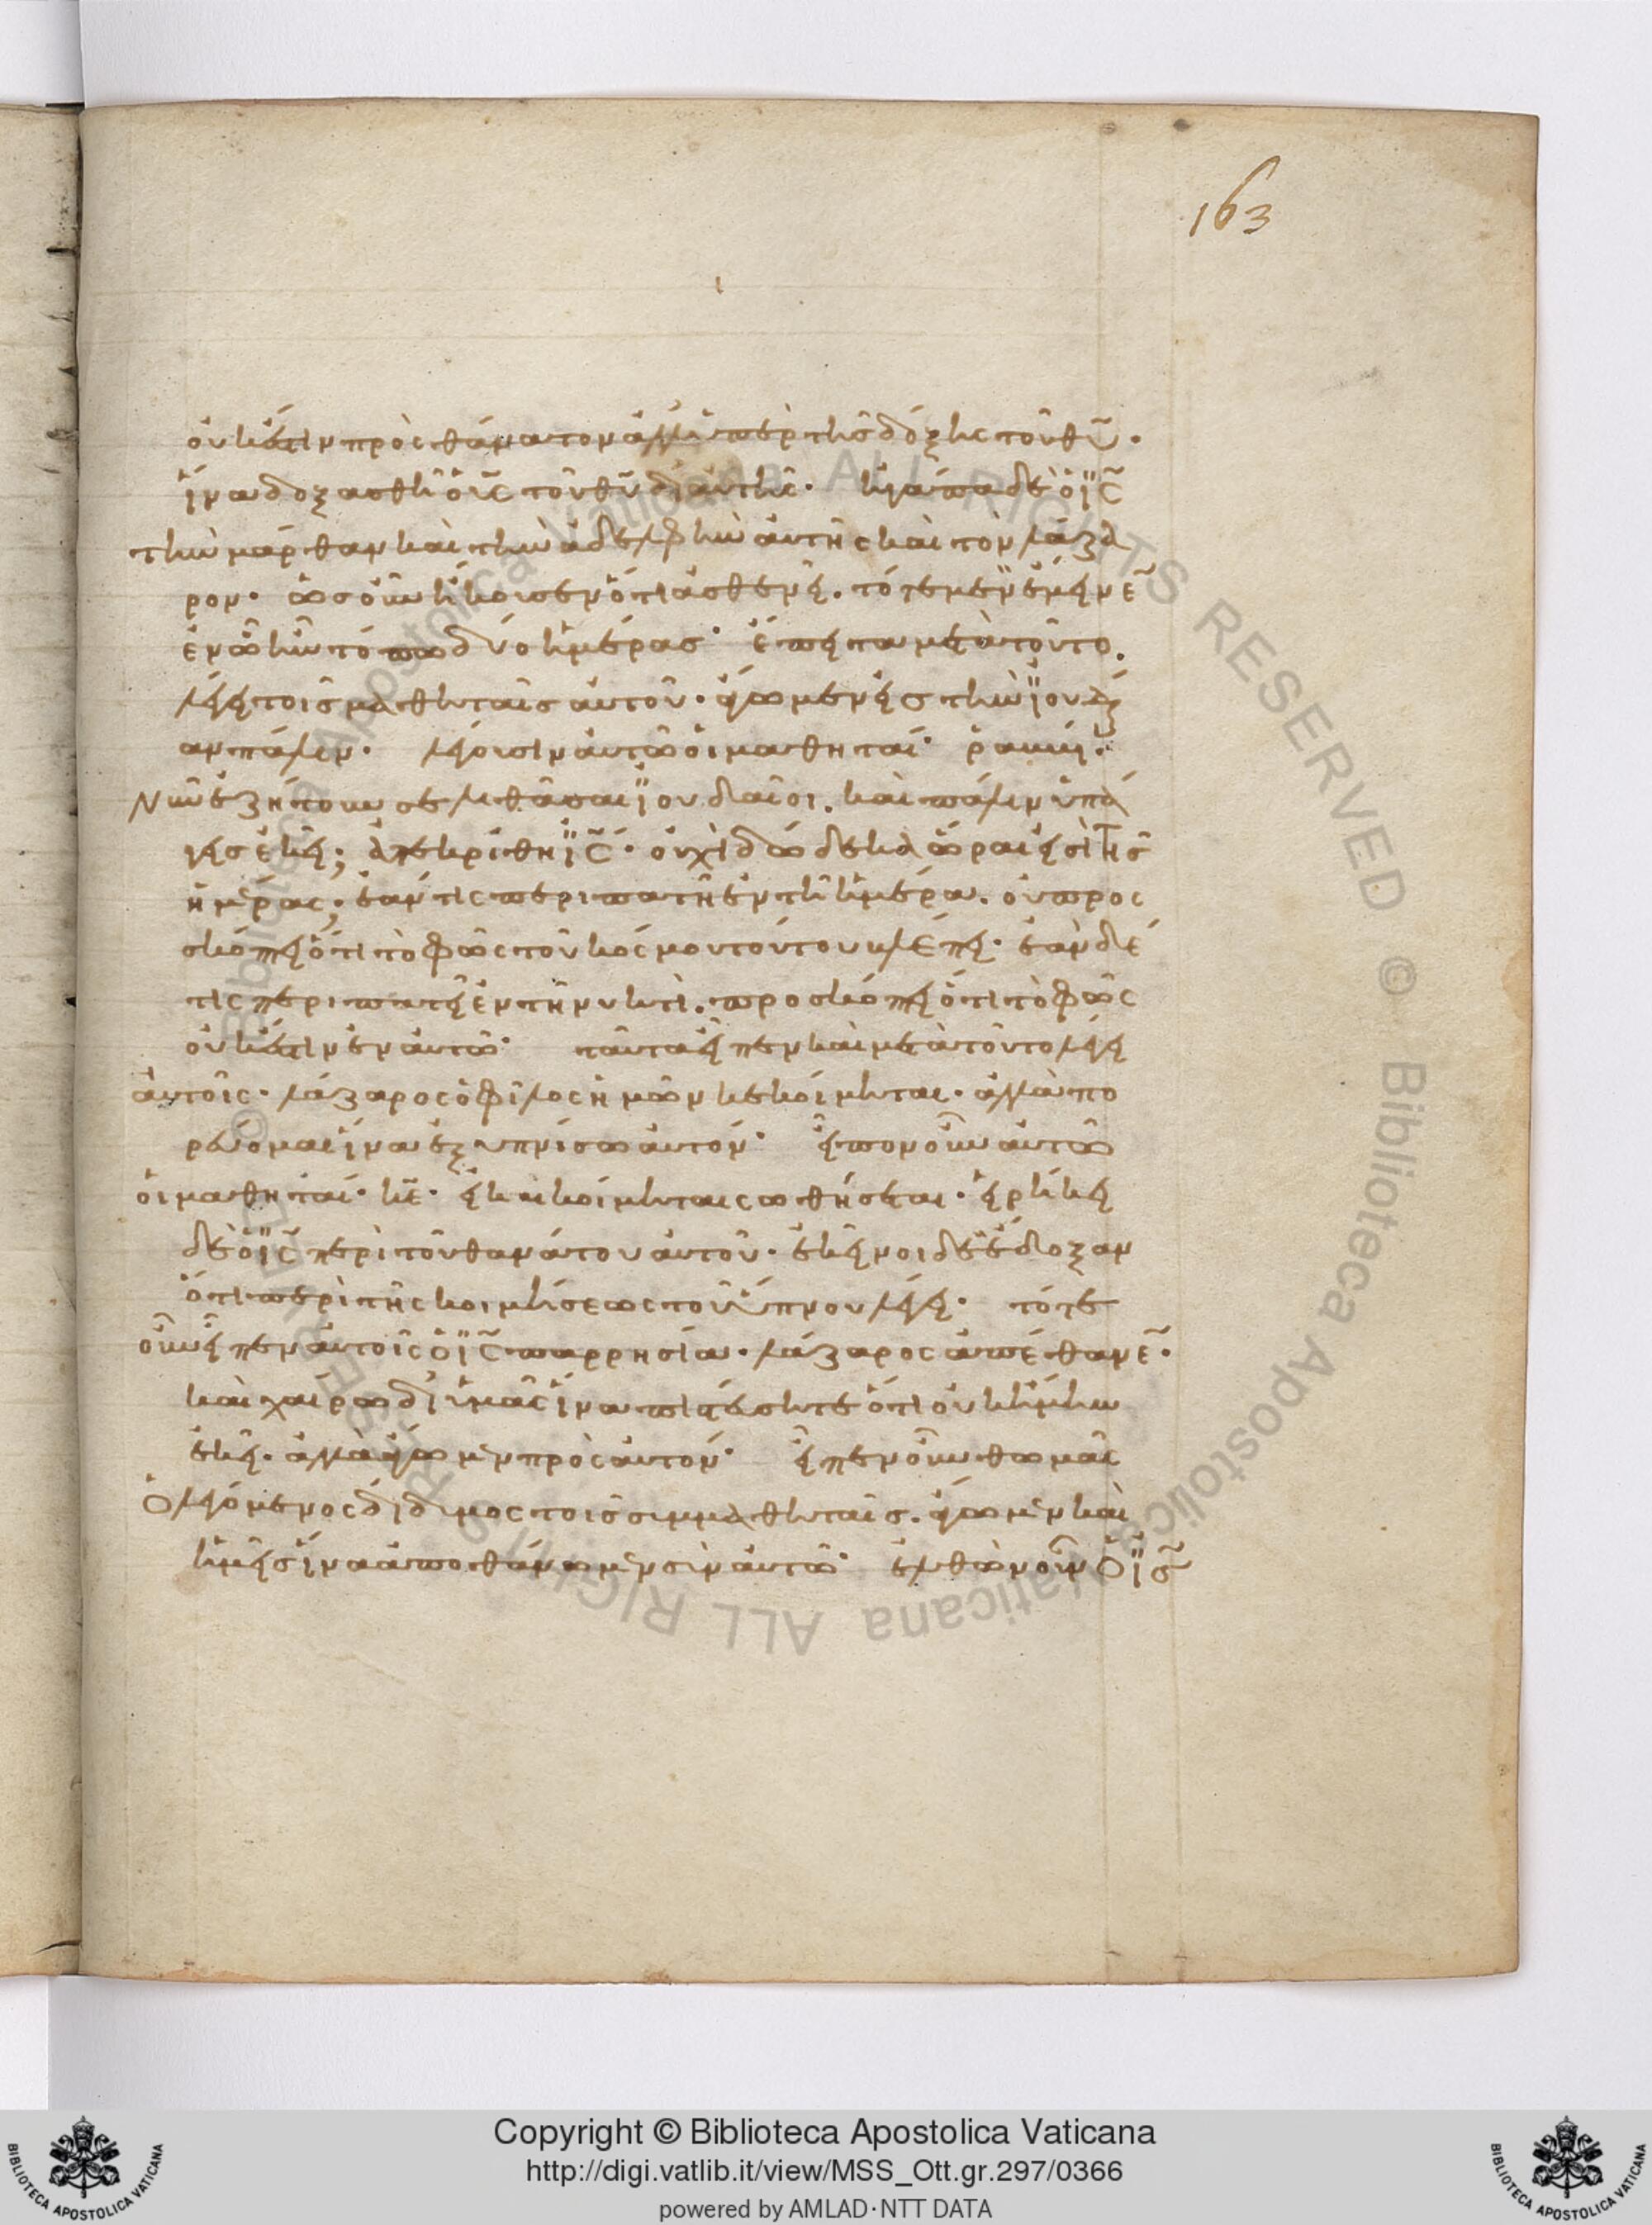 163
οὐκἔστιν πρὸς θάνατον ἀλλ' ὑπὲρ τῆς δόξης τοῦ θῡ·
ἵνα δοξασθῆ ὁ ῡς τοῦ θῡ δι' αὐτῆς· ἠγάπα δὲ ὁ ϊς̄
τὴν μάρθαν καὶ τὴν ἀδελφὴν αὐτῆς καὶ τὸν λάζα
ρον· ὡς οὖν ἤκουσεν ὅτι ἀσθενεῖ. τότε μὲν ἔμεινε
ἐν ὧ ἦν τόπω δύο ἡμέρας· ἔπειτα μετὰ τοῦτο.
λέγει τοῖς μαθηταῖς αὐτοῦ· ἄγωμεν εἰς τὴν ϊουδαί
αν πάλιν· λέγουσιν αὐτῶ οἱ μαθηταί· ῥαββί·
νῦν ἐζήτουν σε λιθᾶσαι ϊουδαῖοι. καὶ πάλιν ὑπά
γεις ἐκεῖ; ἀπεκρίθη ϊς̄· οὐχὶ δώδεκα ὧραι εἰσὶ τῆς
ἡμέρας; ἐάν τις περιπατῆ ἐν τῆ ἡμέρα. οὐ προς
κόπτει ὅτι τὸ φῶς τοῦ κόσμου τούτου βλέπει· ἐὰν δέ
τις περιπατεῖ ἐν τῆ νυκτὶ. προσκόπτει ὅτι τὸ φῶς
οὐκ ἔστιν ἐν αὐτῶ· ταῦτα εἶπεν καὶ μετὰ τοῦτο λέγει
αὐτοῖς· λάζαρος ὁ φίλος ἡμῶν κεκοίμηται· ἀλλὰ πο
ρεύομαι ἵνα ἐξυπνίσω αὐτόν· εἶπον οὖν αὐτῶ
οἱ μαθηταί· κε̄· εἰ κεκοίμηται σωθήσεται· εἰρήκει
δὲ ὁ ϊς̄ περὶ τοῦ θανάτου αὐτοῦ· ἐκεῖνοι δὲ ἔδοξαν
ὅτι περὶ τῆς κοιμήσεως τοῦ ὕπνου λέγει· τότε
οὖν εἶπεν αὐτοῖς ὁ ϊς̄ παρρησία· λάζαρος ἀπέθανε·
καὶ χαίρω δι' ὑμᾶς ἵνα πιστεύσητε ὅτι οὐκ ἤμην
ἐκεῖ· ἀλλὰ ἄγωμεν πρὸς αὐτόν· εἶπεν οὖν θωμᾶς
ὁ λεγόμενος δίδιμος τοῖς σιμμαθηταῖς. ἄγωμεν καὶ
ἡμεῖς ἵνα ἀποθάνωμεν σὶν αὐτῶ· ἐλθὼν οὖν ὁ ϊς̄
Copyright © Biblioteca Apostolica Vaticana
http://digi.vatlib.it/view/MSS_Ott.gr.297/0366
powered by AMLAD·NTT DATA